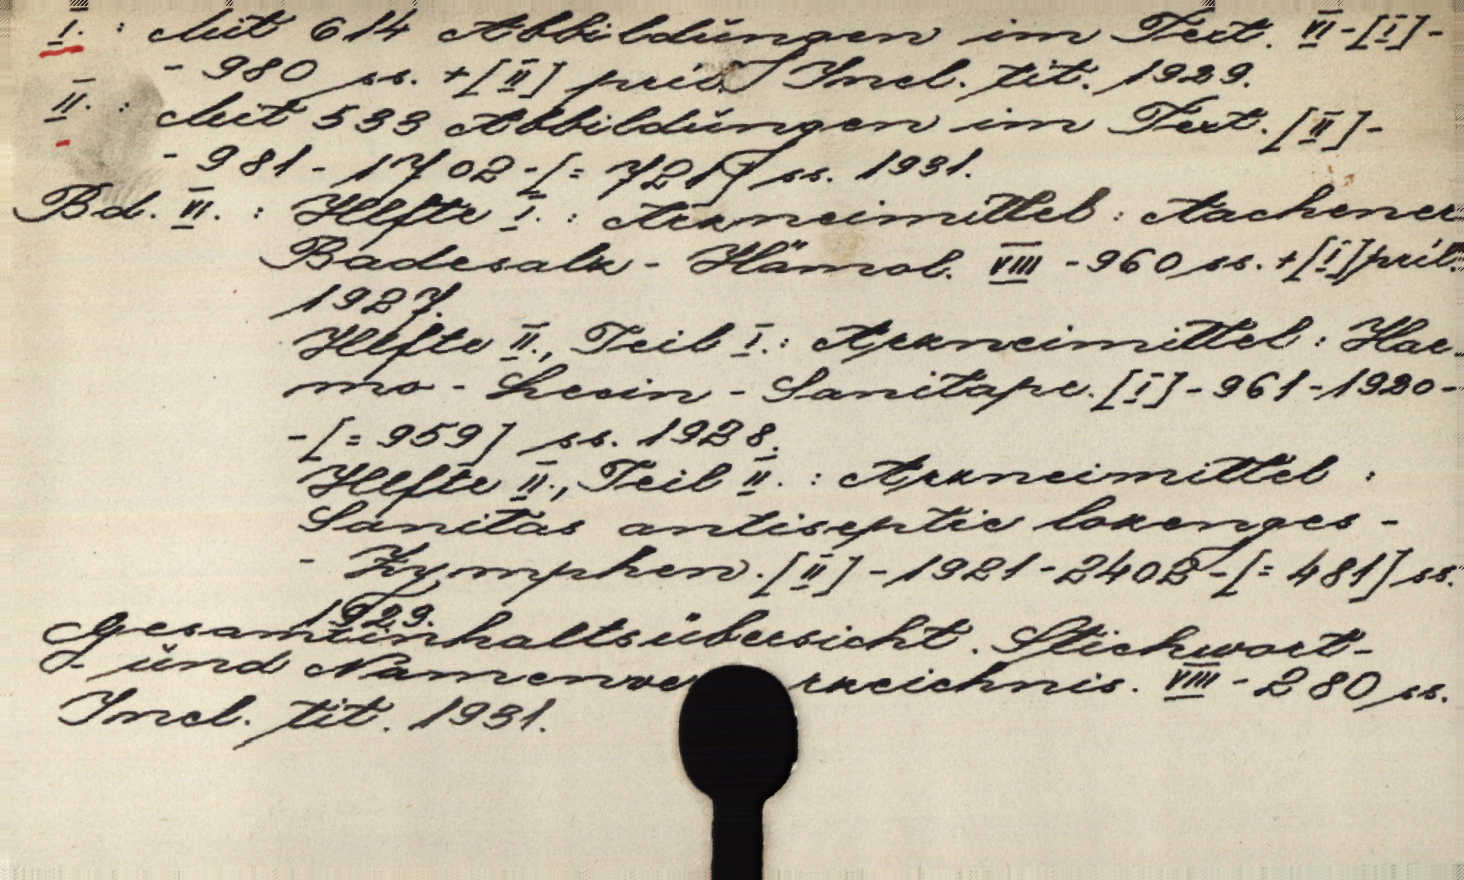 I. : Mit 614 Abbildŭngen im Text. VI-[I]-
- 980 ss. +[II] pril. Incl. tit. 1929.
II. : Mit 533 Abbildŭngen im Text. [II]-
- 981 - 1702 -[= 721] ss. 1931.
Bd. VI. : Hlfte I. : Arzneimittel : Aachener
Badesalz - Hämol. VIII - 960 ss. +[I] pril.
1927.
Hlfte II., Teil I. : Arzneimittel : Hae-
mo - Lecin - Sanitape. [I] - 961 - 1920 -
-[= 959] ss. 1928.
Hlfte II., Teil II. : Arzneimittel :
Sanitas antiseptic lozenges -
- Zymphen. [II] - 1921 - 2402 -[= 481] ss.
1929.
Gesamtinhaltsübersicht. Stichwort-
- ŭnd Namenverzeichnis. VIII - 280 ss.
Incl. tit. 1931.